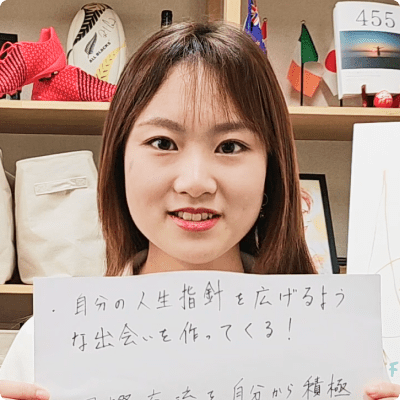 455
ALL BLACKS
・自分の人生指針を広げるよう
な出会いを作ってくる！
を自分から積極